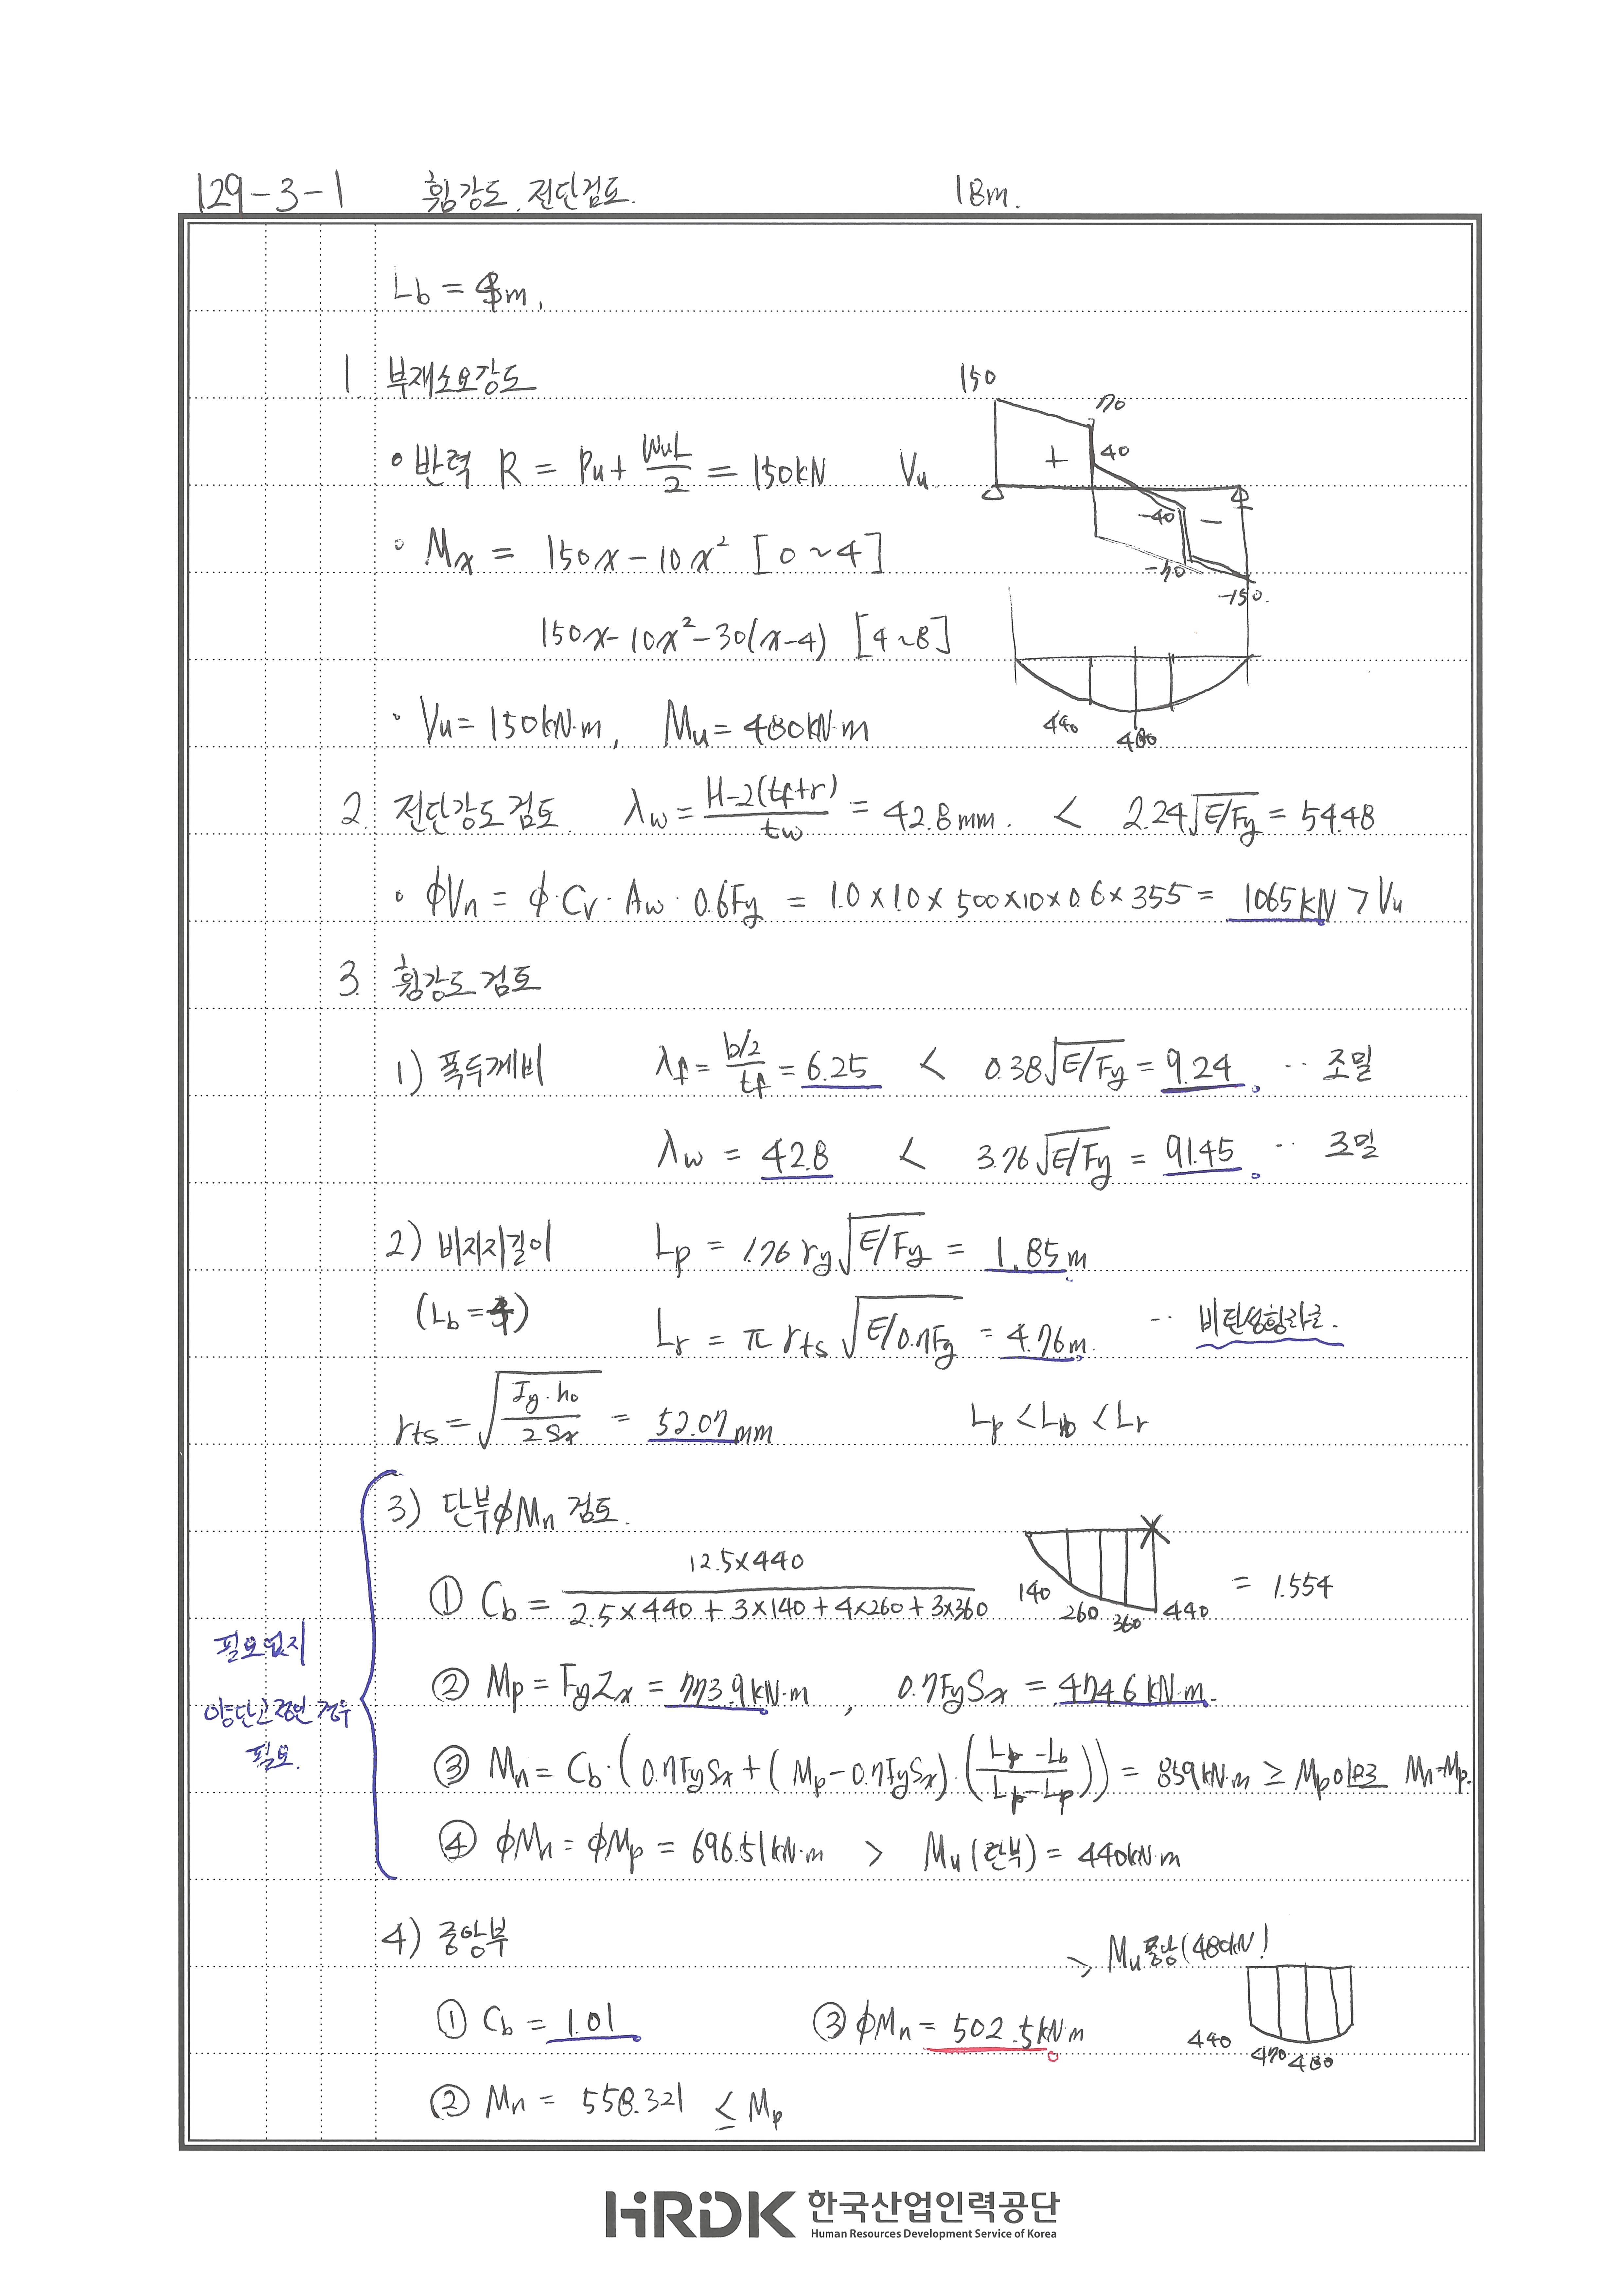 129-3-1 휨강도, 전단검토. 18m.
Lb = 4m,
1. 부재소요강도
150
70
• 반력 R = Pu + WuL/2 = 150kN Vu + 40
-40 -
• Mx = 150x - 10x² [0~4]
-70
-150.
150x - 10x² - 30(x-4) [4~8]
• Vu = 150kN·m, Mu = 480kN·m
440 480
2. 전단강도 검토. λw = H-2(tf+r)/tw = 42.8mm. < 2.24√E/Fy = 54.48
• φVn = φ·Cv·Aw·0.6Fy = 1.0×1.0×500×10×0.6×355 = 1065kN > Vu
3. 휨강도 검토
1) 폭두께비 λf = b/2/tf = 6.25 < 0.38√E/Fy = 9.24. ·· 조밀
λw = 42.8 < 3.76√E/Fy = 91.45. ·· 조밀
2) 비지지길이 Lp = 1.76 ry√E/Fy = 1.85m
(Lb = 4) Lr = π rts √E/0.7Fy = 4.76m. ·· 비탄성횡좌굴.
rts = √Iy·ho/2Sx = 52.07mm Lp < Lb < Lr
3) 단부 φMn 검토.
① Cb = 12.5×440/2.5×440 + 3×140 + 4×260 + 3×360 = 1.554
140 260 360 440
필요없지
양단고정인 경우
필요.
② Mp = FyZx = 773.9kN·m, 0.7FySx = 474.6kN·m.
③ Mn = Cb·(0.7FySx + (Mp - 0.7FySx)·(Lp-Lb/Lp-Lp)) = 859kN·m ≥ Mp이므로 Mn=Mp.
④ φMn = φMp = 696.51kN·m > Mu(단부) = 440kN·m
4) 중앙부
> Mu중앙(480kN!
① Cb = 1.01 ③ φMn = 502.5kN·m
440 470 480
② Mn = 558.321 ≤ Mp
HRDK 한국산업인력공단
Human Resources Development Service of Korea